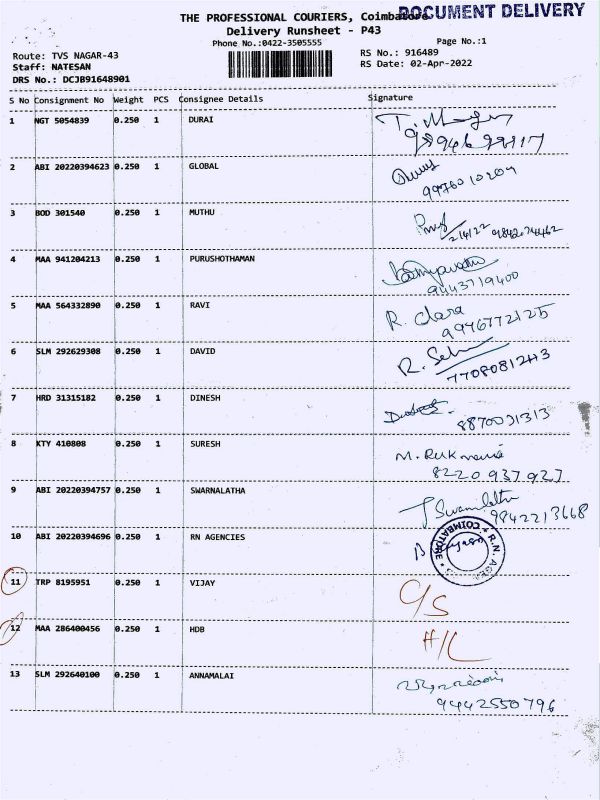 DOCUMENT DELIVERY
THE PROFESSIONAL COURIERS, Coimbatore
Delivery Runsheet - P43
Phone No.:0422-3505555
Page No.:1
Route: TVS NAGAR-43
RS No.: 916489
Staff: NATESAN
RS Date: 02-Apr-2022
DRS No.: DCJB91648901
S No Consignment No Weight PCS Consignee Details Signature
1 NGT 5054839 0.250 1 DURAI
2 ABI 20220394623 0.250 1 GLOBAL
9976010209
3 BOD 301540 0.250 1 MUTHU
2/4/22 9842074462
4 MAA 941204213 0.250 1 PURUSHOTHAMAN
9443719400
5 MAA 564332890 0.250 1 RAVI R. Clara
9976772125
6 SLM 292629308 0.250 1 DAVID
7708081243
7 HRD 31315182 0.250 1 DINESH
8870031313
8 KTY 410808 0.250 1 SURESH M. Rukmani
8220937927
9 ABI 20220394757 0.250 1 SWARNALATHA
9842213668
10 ABI 20220394696 0.250 1 RN AGENCIES
COIMBATORE
11 TRP 8195951 0.250 1 VIJAY
12 MAA 286400456 0.250 1 HDB H/L
13 SLM 292640100 0.250 1 ANNAMALAI
9442550796